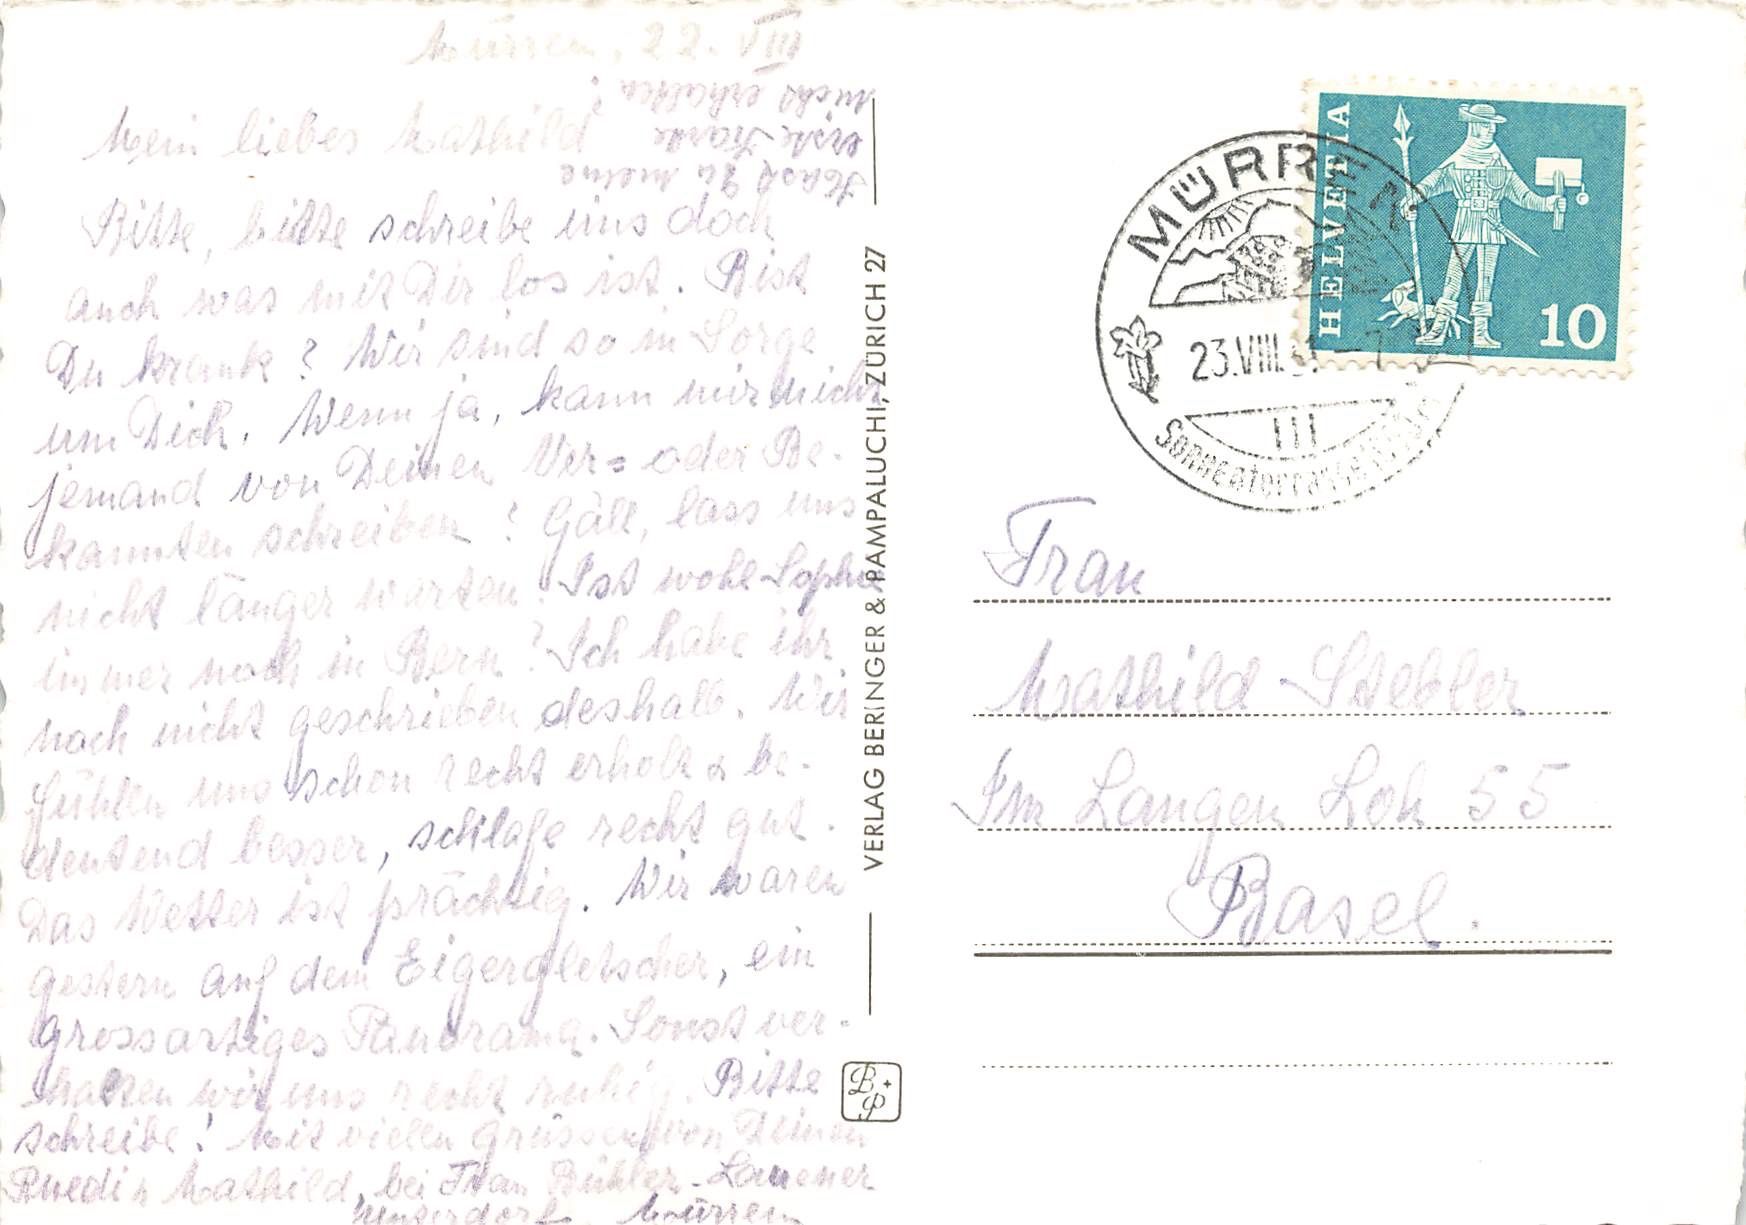 Mürren, 22. VIII
Hast Du meine
erste Karte
nicht erhalten?
Mein liebes Mathild
Bitte, bitte schreibe uns doch
auch was mit Dir los ist. Bist
Du krank? Wir sind so in Sorge
um Dich. Wenn ja, kann mir nicht
jemand von Deinen Ver= oder Be-
kannten schreiben? Gäll, lass uns
nicht länger warten. Ist wohl Sophie
immer noch in Bern? Ich habe ihr
noch nicht geschrieben deshalb. Wir
fühlen uns schon recht erholt & be-
deutend besser, schlafe recht gut.
Das Wetter ist prächtig. Wir waren
gestern auf dem Eigergletscher, ein
grossartiges Panorama. Sonst ver-
halten wir uns recht ruhig. Bitte
schreibe! Mit vielen Grüssen von Deinen
Ruedi & Mathild, bei Frau Bühler-Lauener
Unterdorf, Mürren
VERLAG BERINGER & PAMPALUCHI, ZÜRICH 27
B+P
HELVETIA
10
MÜRREN
23.VIII.61-7
Sonnenterrasse
Frau
Mathild Stebler
Im Langen Loh 55
Basel.